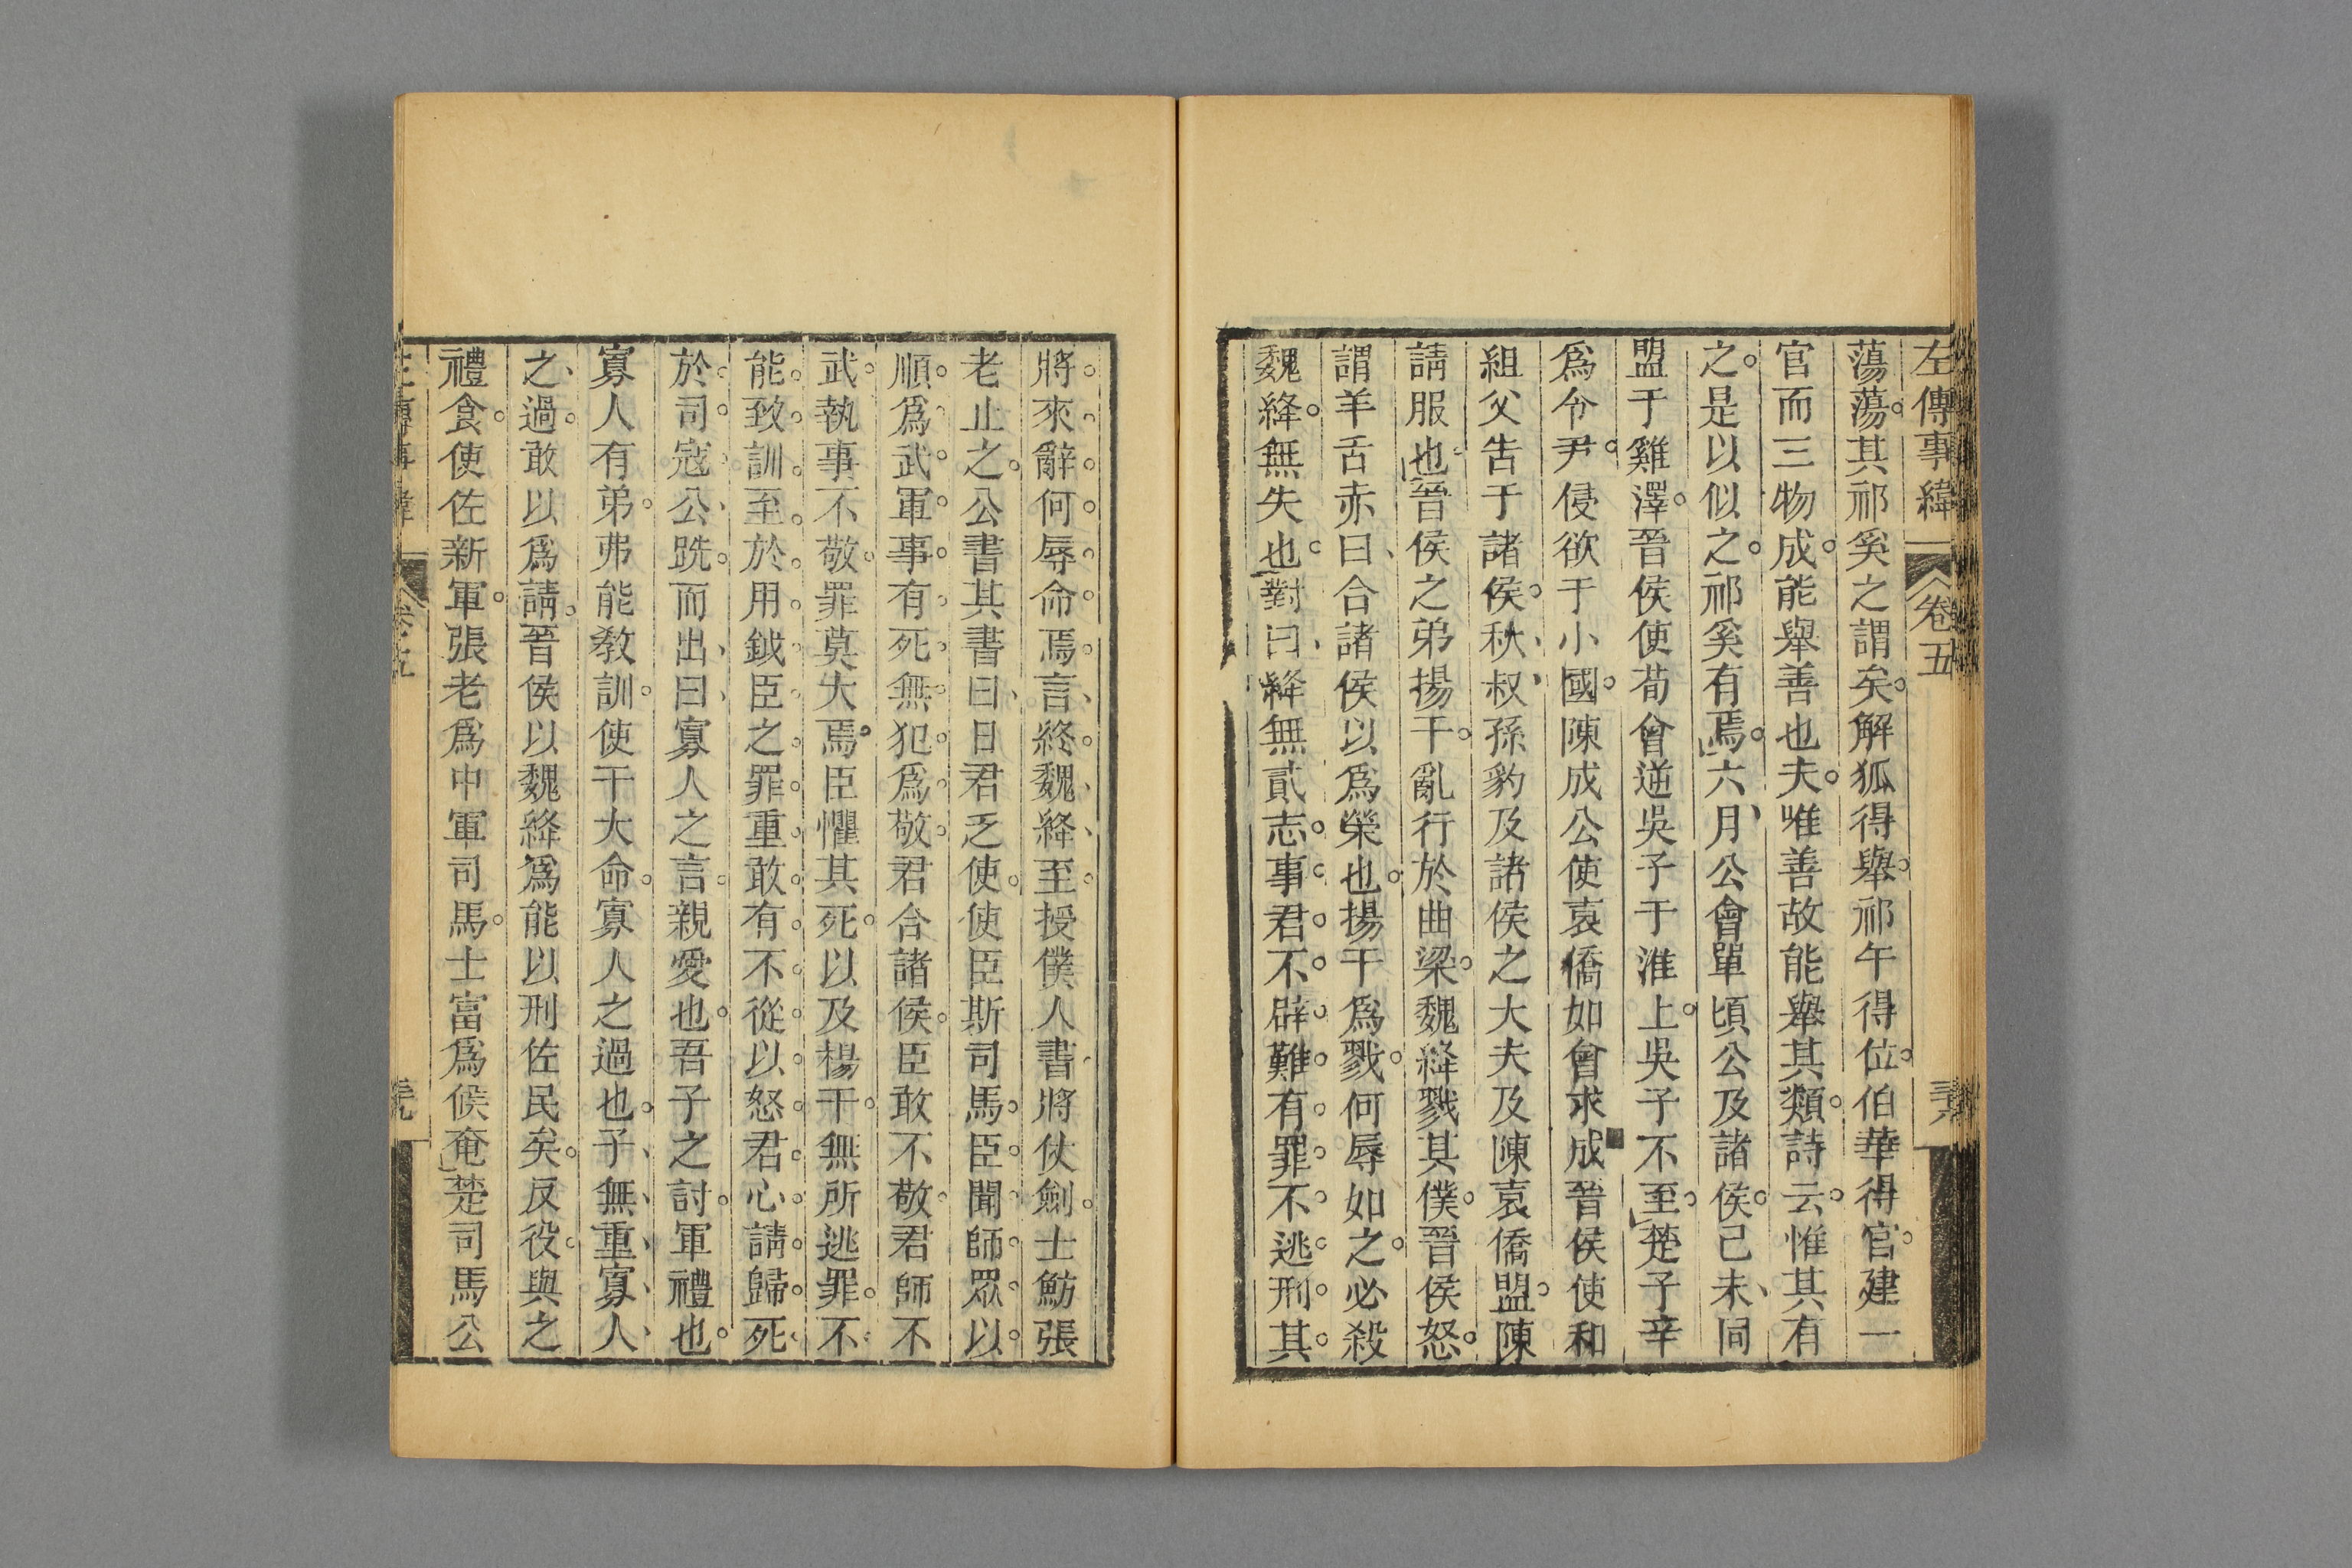 左傳事緯 卷五
蕩蕩其祁奚之謂矣解狐得舉祁午得位伯華得官建一
官而三物成能舉善也夫唯善故能舉其類詩云惟其有
之是以似之祁奚有焉六月公會單頃公及諸侯己未同
盟于雞澤晉侯使荀會逆吳子于淮上吳子不至楚子辛
爲令尹侵欲于小國陳成公使袁僑如會求成晉侯使和
組父告于諸侯秋叔孫豹及諸侯之大夫及陳袁僑盟陳
請服也晉侯之弟揚干亂行於曲梁魏絳戮其僕晉侯怒
謂羊舌赤曰合諸侯以爲榮也揚干爲戮何辱如之必殺
魏絳無失也對曰絳無貳志事君不辟難有罪不逃刑其
將來辭何辱命焉言終魏絳至授僕人書將伏劍士魴張
老止之公書其書曰日君乏使使臣斯司馬臣聞師眾以
順爲武軍事有死無犯爲敬君合諸侯臣敢不敬君師不
武執事不敬罪莫大焉臣懼其死以及楊干無所逃罪不
能致訓至於用鉞臣之罪重敢有不從以怒君心請歸死
於司寇公跣而出曰寡人之言親愛也吾子之討軍禮也
寡人有弟弗能教訓使干大命寡人之過也子無重寡人
之過敢以爲請晉侯以魏絳爲能以刑佐民矣反役與之
禮食使佐新軍張老爲中軍司馬士富爲候奄楚司馬公